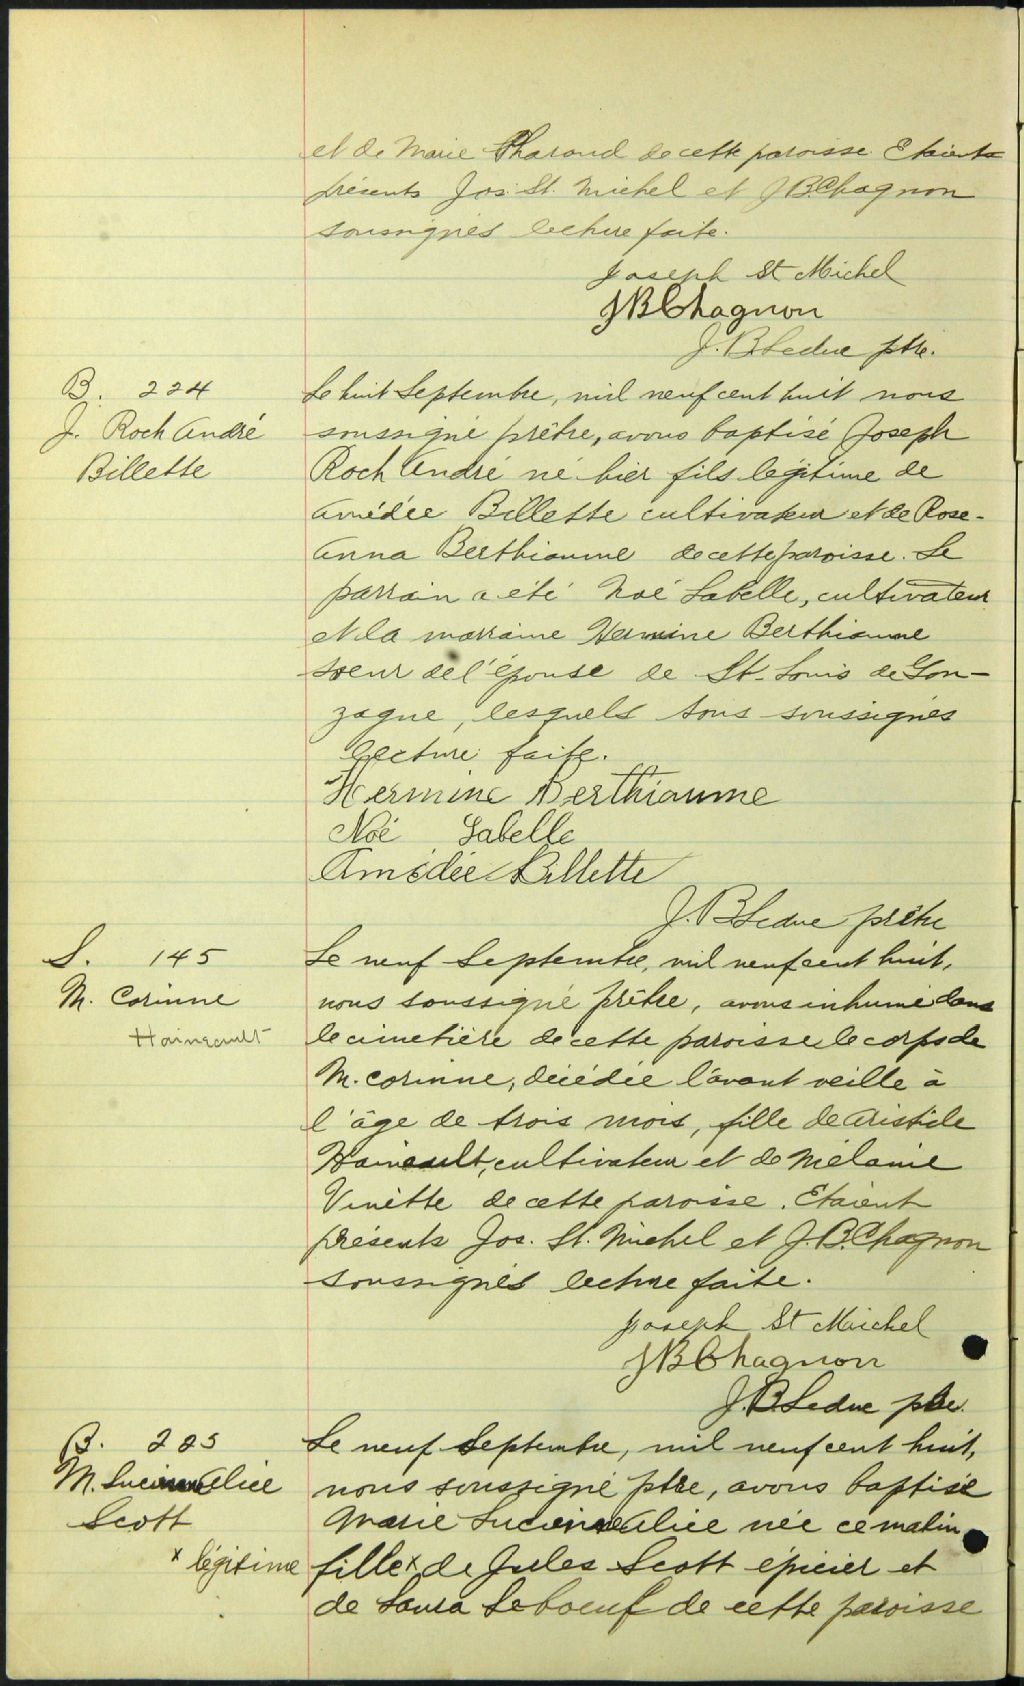 et de Marie Pharand de cette paroisse Etaient
présents Jos. St. Michel et J B. Chagnon
soussignés lecture faite.
Joseph St Michel
JB Chagnon
J. B. Leduc ptre.
B. 224
J. Roch André
Billette
Le huit Septembre, mil neuf cent huit nous
soussigné prêtre, avons baptisé Joseph
Roch André né hier fils légitime de
Amédée Billette cultivateur et de Rose-
Anna Berthiaume de cette paroisse. Le
parrain a été Noé Labelle, cultivateur
et la marraine Hermine Berthiaume
soeur de l'épouse de St-Louis de Gon-
zague, lesquels tous soussignés
lecture faite.
Hermine Berthiaume
Noé Labelle
Amédée Billette
J. B Leduc prêtre
S. 145
M. Corinne
Haineault
Le neuf Septembre, mil neuf cent huit,
nous soussigné prêtre, avons inhumé dans
le cimetière de cette paroisse le corps de
M. Corinne, décédée l'avant veille à
l'âge de trois mois, fille de Aristide
Haineault, cultivateur et de Mélanie
Vinette de cette paroisse. Etaient
présents Jos. St. Michel et J. B. Chagnon
soussignés lecture faite.
Joseph St Michel
JB Chagnon
J. B. Leduc ptre.
B. 225
M. Lucienne Alice
Scott
x légitime
Le neuf Septembre, mil neuf cent huit,
nous soussigné ptre, avons baptisé
Marie Lucienne Alice née ce matin
fille x de Jules Scott épicier et
de Laura Leboeuf de cette paroisse